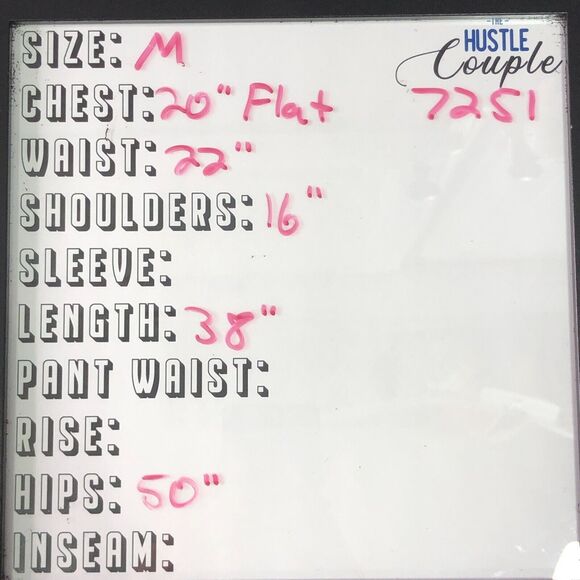 SIZE: M
THE
HUSTLE
Couple
CHEST: 20" Flat 7251
WAIST: 22"
SHOULDERS: 16"
SLEEVE:
LENGTH: 38"
PANT WAIST:
RISE:
HIPS: 50"
INSEAM: